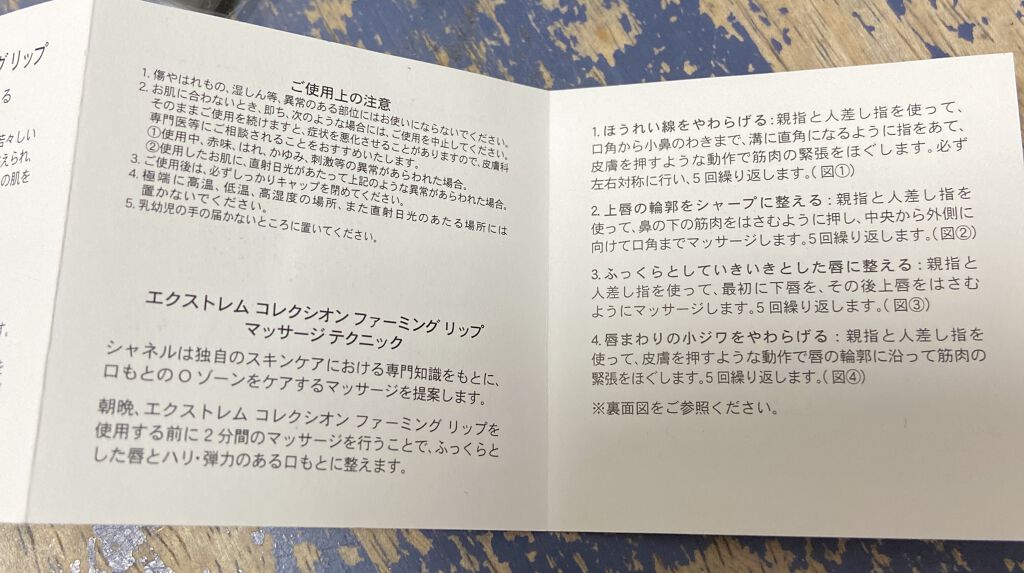 グリップ
る
苦々しい
えられ、
の肌を
す。
を
ご使用上の注意
1. 傷やはれもの、湿しん等、異常のある部位にはお使いにならないでください。
2. お肌に合わないとき、即ち、次のような場合には、ご使用を中止してください。
そのままご使用を続けますと、症状を悪化させることがありますので、皮膚科
専門医等にご相談されることをおすすめいたします。
①使用中、赤味、はれ、かゆみ、刺激等の異常があらわれた場合。
②使用したお肌に、直射日光があたって上記のような異常があらわれた場合。
3. ご使用後は、必ずしっかりキャップを閉めてください。
4. 極端に高温、低温、高湿度の場所、また直射日光のあたる場所には
置かないでください。
5. 乳幼児の手の届かないところに置いてください。
エクストレム コレクシオン ファーミング リップ
マッサージ テクニック
シャネルは独自のスキンケアにおける専門知識をもとに、
口もとの O ゾーンをケアするマッサージを提案します。
朝晩、エクストレム コレクシオン ファーミング リップを
使用する前に 2 分間のマッサージを行うことで、ふっくらと
した唇とハリ・弾力のある口もとに整えます。
1. ほうれい線をやわらげる：親指と人差し指を使って、
口角から小鼻のわきまで、溝に直角になるように指をあて、
皮膚を押すような動作で筋肉の緊張をほぐします。必ず
左右対称に行い、5 回繰り返します。（図①）
2. 上唇の輪郭をシャープに整える：親指と人差し指を
使って、鼻の下の筋肉をはさむように押し、中央から外側に
向けて口角までマッサージします。5 回繰り返します。（図②）
3. ふっくらとしていきいきとした唇に整える：親指と
人差し指を使って、最初に下唇を、その後上唇をはさむ
ようにマッサージします。5 回繰り返します。（図③）
4. 唇まわりの小ジワをやわらげる：親指と人差し指を
使って、皮膚を押すような動作で唇の輪郭に沿って筋肉の
緊張をほぐします。5 回繰り返します。（図④）
※裏面図をご参照ください。